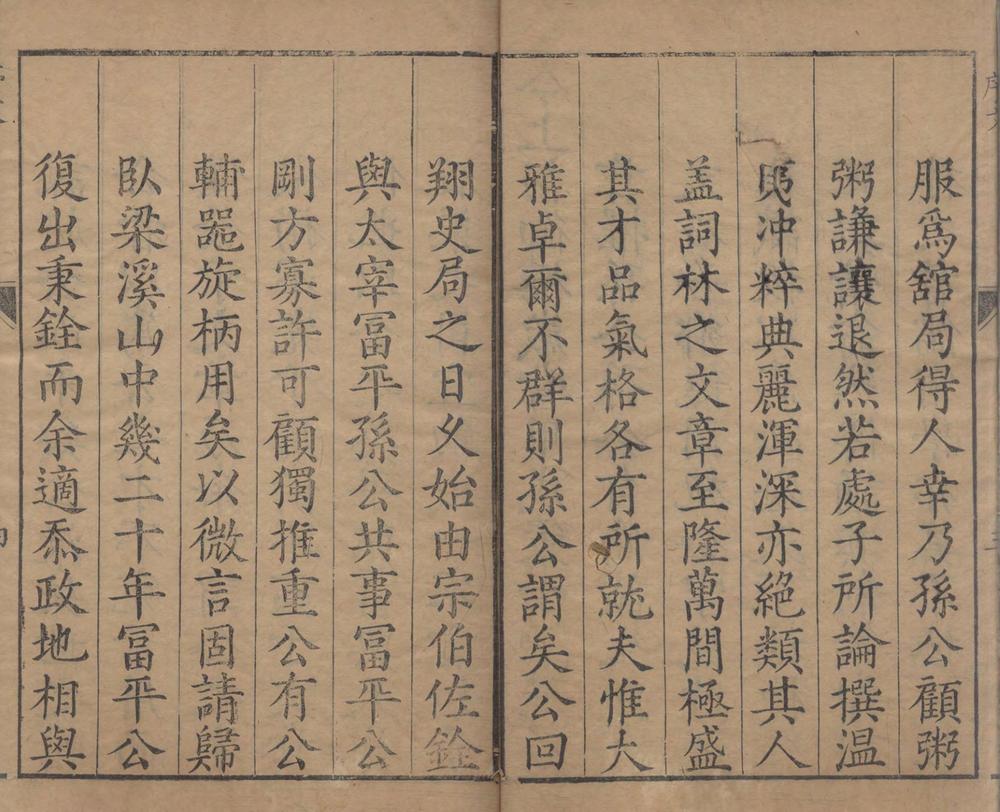 服爲舘局得人幸乃孫公顧粥
粥謙讓退然若處子所論撰温
夷冲粹典麗渾深亦絕類其人
盖詞林之文章至隆萬間極盛
其才品氣格各有所就夫惟大
雅卓爾不群則孫公謂矣公回
翔史局之日乆始由宗伯佐銓
與太宰冨平孫公共事冨平公
剛方寡許可顧獨推重公有公
輔器旋柄用矣以微言固請歸
臥梁溪山中幾二十年冨平公
復出秉銓而余適忝政地相與